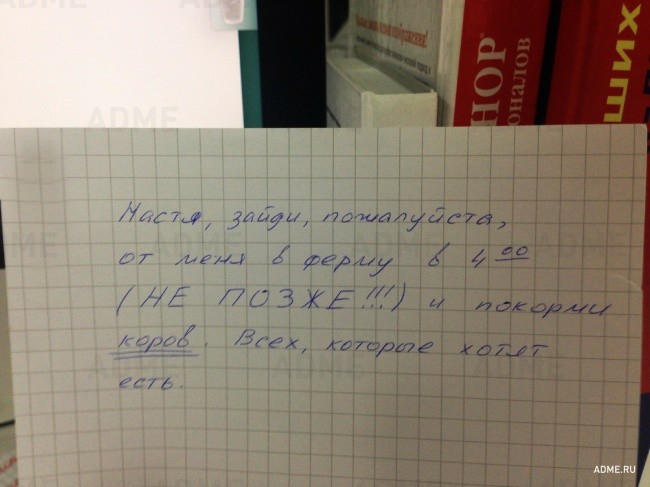 НОР
оналов
хищ
Настя, зайди, пожалуйста,
от меня в ферму в 4 00
(НЕ ПОЗЖЕ!!!) и покорми
коров. Всех, которые хотят
есть.
ADME.RU